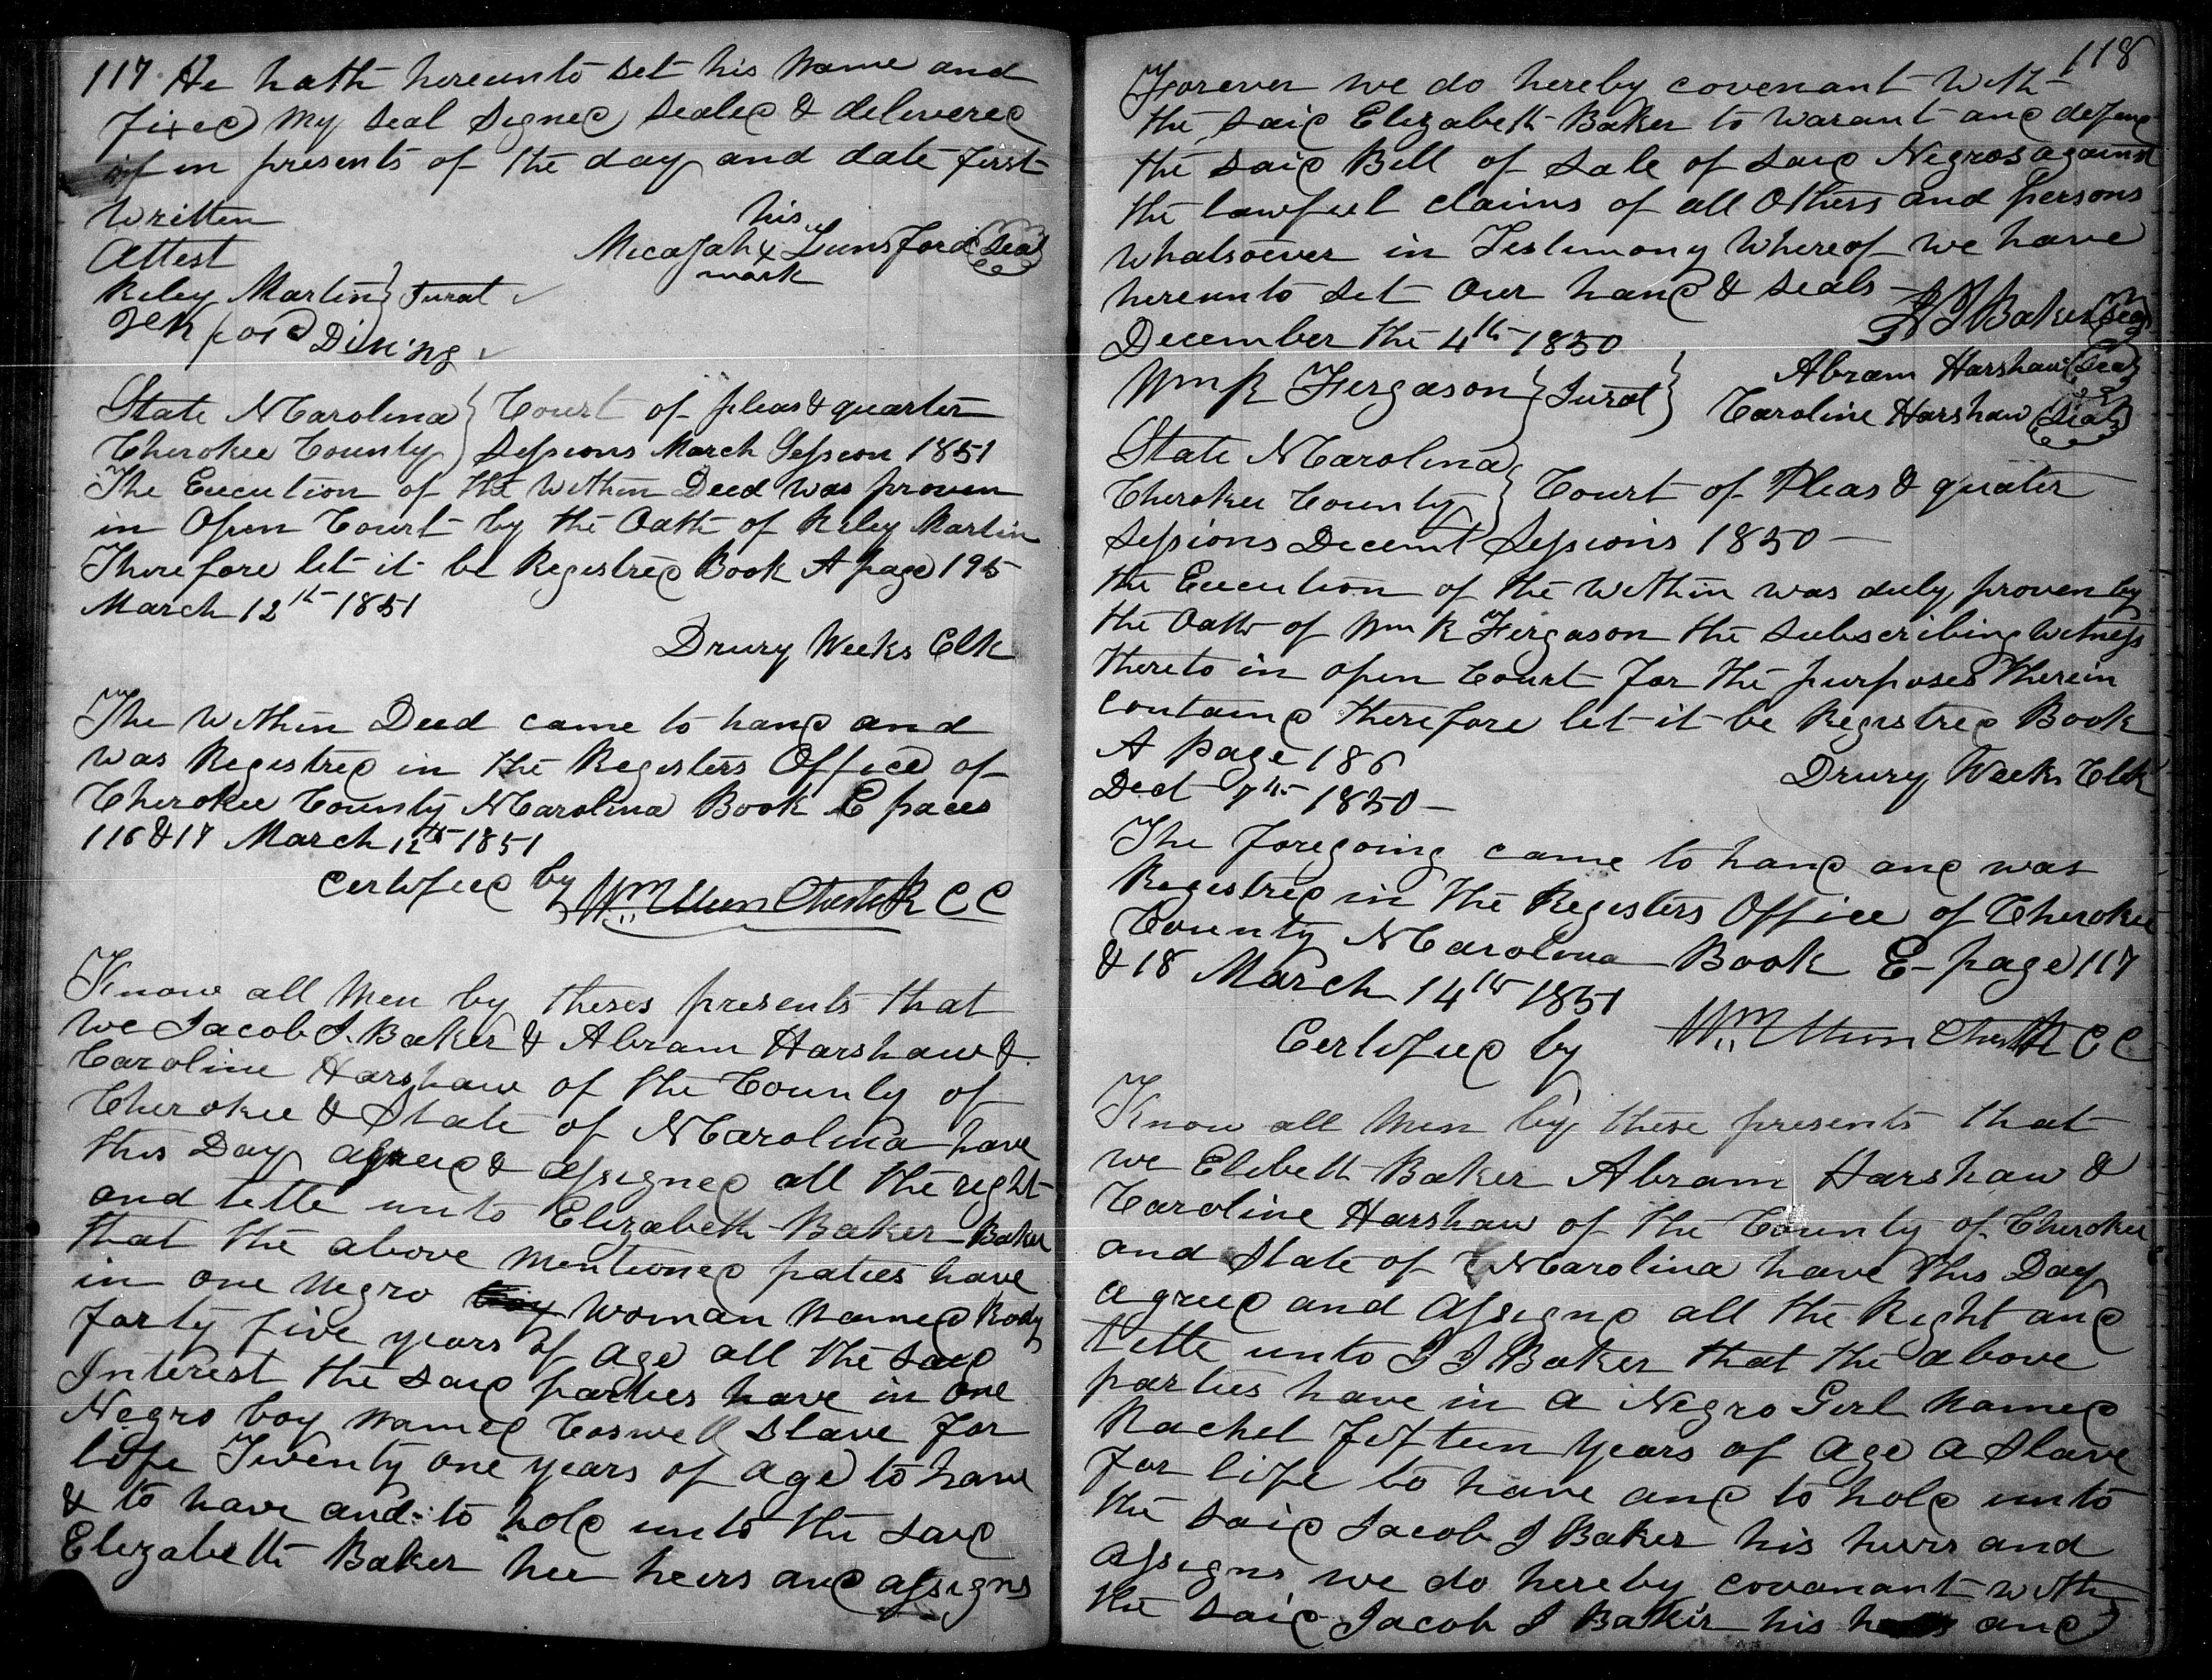 117. He hath hereunto set his name and
fixed my seal signed sealed & delivered
if in presents of the day and date first
written
Attest
his
Micajah x Lunsford (Seal)
mark
Riley Martin } Jurat
Dining
State N Carolina } Court of pleas & quarter
Cherokee County } Sessions March Session 1851
The Execution of the within Deed was proven
in Open Court by the Oath of Riley Martin
Therefore let it be Registred Book A page 195
March 12th 1851
Drury Weeks Clk
The within Deed came to hand and
was Registred in the Registers Office of
Cherokee County N Carolina Book E paces
116 & 17 March 12th 1851
Certified by Wm C C
Know all Men by theses presents that
we Jacob J. Baker & Abram Harshaw &
Caroline Harshaw of the County of
Cherokee & State of N Carolina have
this Day agreed & assigned all the right
and tettle unto Elizabeth Baker Baker
that the above mentioned paties have
in one Negro boy woman named Rody
forty five years of age all the said
Interest the said parties have in one
Negro boy named Coswell slave for
life Twenty one years of age to have
& to have and to hold unto the said
Elizabeth Baker her heirs and assigns
118
Forever we do hereby covenant with
the said Elizabeth Baker to warant and defend
the said Bill of Sale of said Negros against
the lawful claims of all Others and persons
whatsoever in Testimony whereof we have
hereunto set Our hand & seals
December the 4th 1850
J J Baker (Seal)
Wm R Fergason } Jurat }
Abram Harshaw (Seal)
Caroline Harshaw (Seal)
State N Carolina }
Cherokee County } Court of Pleas & quater
Sessions Decemt Sessions 1850
the Execution of the within was duly proven by
the Oath of Wm R Fergason the subscribing witness
thereto in open Court for the purposes therein
containd therefore let it be Registred Book
A page 186
Drury Weeks Clk
Dect 7th 1850
The foregoing came to hand and was
Registred in the Registers Office of Cherokee
County N Carolina Book E page 117
& 18 March 14th 1851
Certified by Wm C C
Know all Men by these presents that
we Elibeth Baker Abram Harshaw &
Caroline Harshaw of the County of Cherokee
and State of N Carolina have this Day
agreed and assignd all the Right and
tettle unto J J Baker that the above
parties have in a Negro Girl named
Rachel fifteen years of age a slave
for life to have and to hold unto
the said Jacob J Baker his heirs and
assigns we do hereby covanant with
the said Jacob J Baker his and